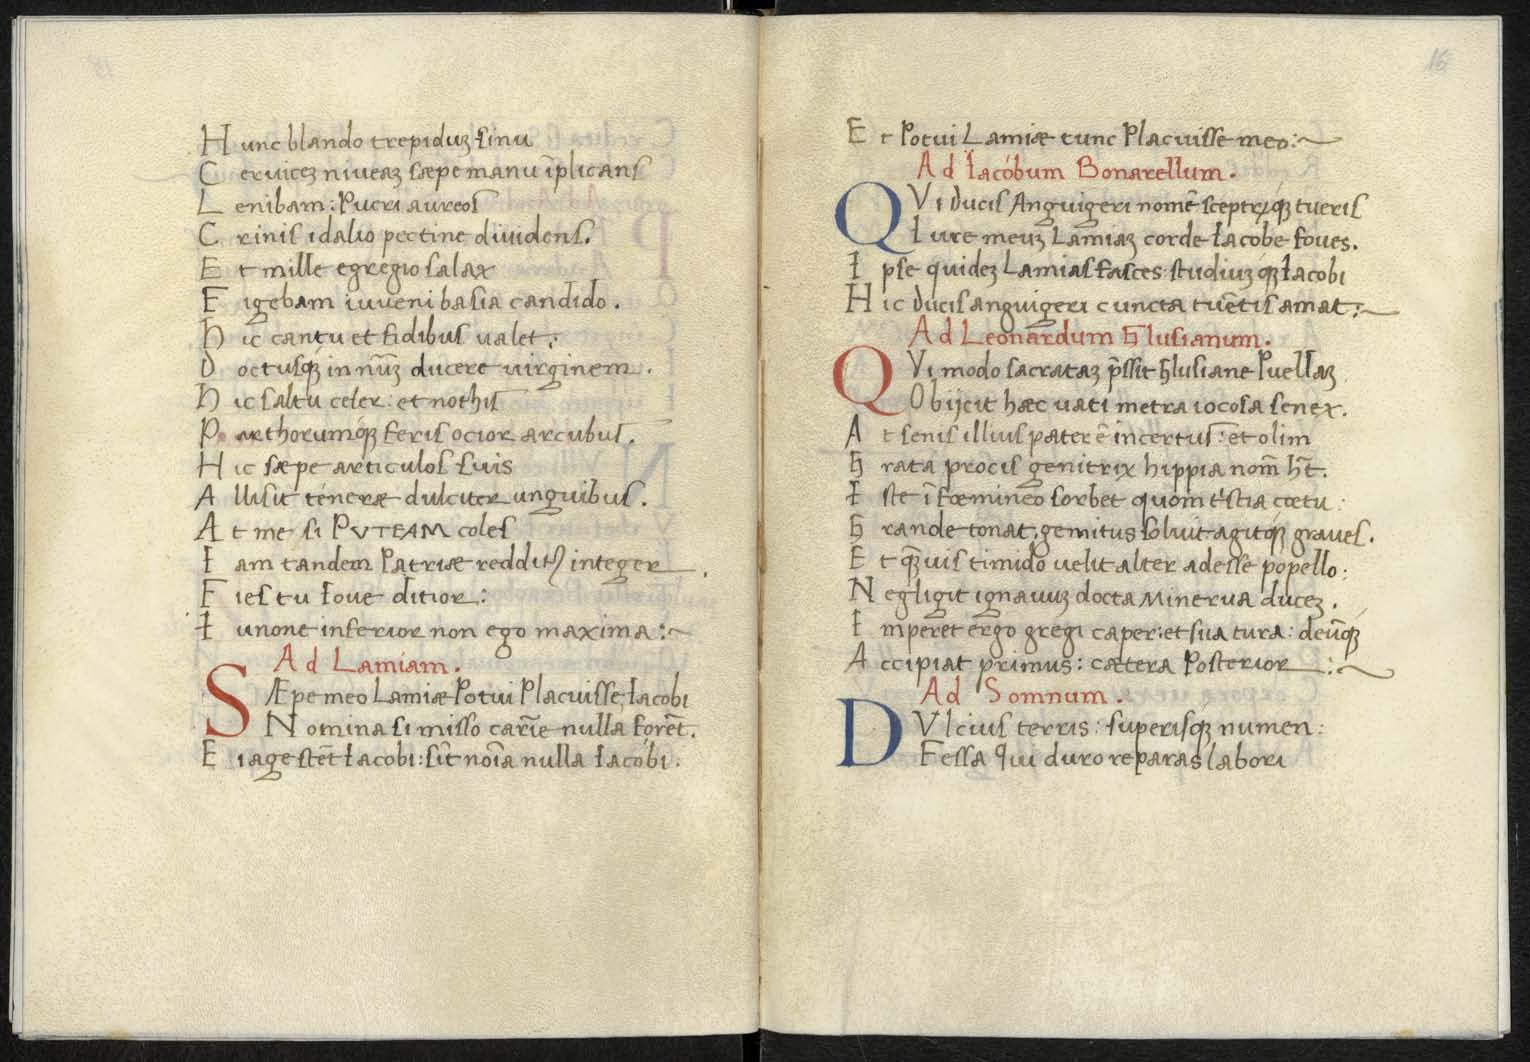 Hunc blando trepiduꝫ sinu
Ceruiceꝫ niueaꝫ sæpe manu īplicans
Lenibam: Pueri aureos
Crinis idalio pectine diuidens.
Et mille egregio salax
Figebam iuueni basia candido.
Hic cantu et fidibus ualet:
Doctusqꝫ in nūꝫ ducere uirginem.
Hic saltu celer: et nothis
Parthorumqꝫ feris ocior arcubus.
Hic sæpe articulos suis
Allisit teneræ dulciter unguibus.
At me si PVTEAM coles
Iam tandem Patriæ integer
Fies tu Ioue ditior:
Iunone inferior non ego maxima:~
Ad Lamiam.
SÆpe meo Lamiæ Potui Placuisse, Iacobi
Nomina si misso carīe nulla forēt.
Ei age stēt Iacobi: sīt noīa nulla Iacobi:
16
Et Potui Lamiæ tunc Placuisse meo:~
Ad Iacóbum Bonarellum.
QVi Ducis Anguigeri nomē sceptriqꝫ tueris
Iure meuꝫ Lamiaꝫ corde Iacobe foues.
Ipse quideꝫ Lamias fasces: studiuꝫqꝫ Iacobi
Hic Ducis anguigeri cuncta tuētis amat:~
Ad Leonardum Glusianum.
QVi modo sacrataꝫ p̄ssit Glusiane Puellaꝫ
Obijcit hæc uati metra iocosa senex.
At senis illius pater ē incertus: et olim
Grata procis genitrix hippia nom̄ h̄t.
Iste ī fœmineo sorbet quom t̄stia cœtu:
Grande tonat, gemitus soluit agitqꝫ graues.
Et qꝫuis timido uelit alter adesse popello:
Negligit ignauuꝫ docta Minerua duceꝫ.
Imperet ergo gregi caper: et sua tura: deūqꝫ
Accipiat primus: cætera Posterior:~
Ad Somnum.
DVlcius terris: superisqꝫ numen:
Fessa qui duro reparas labori